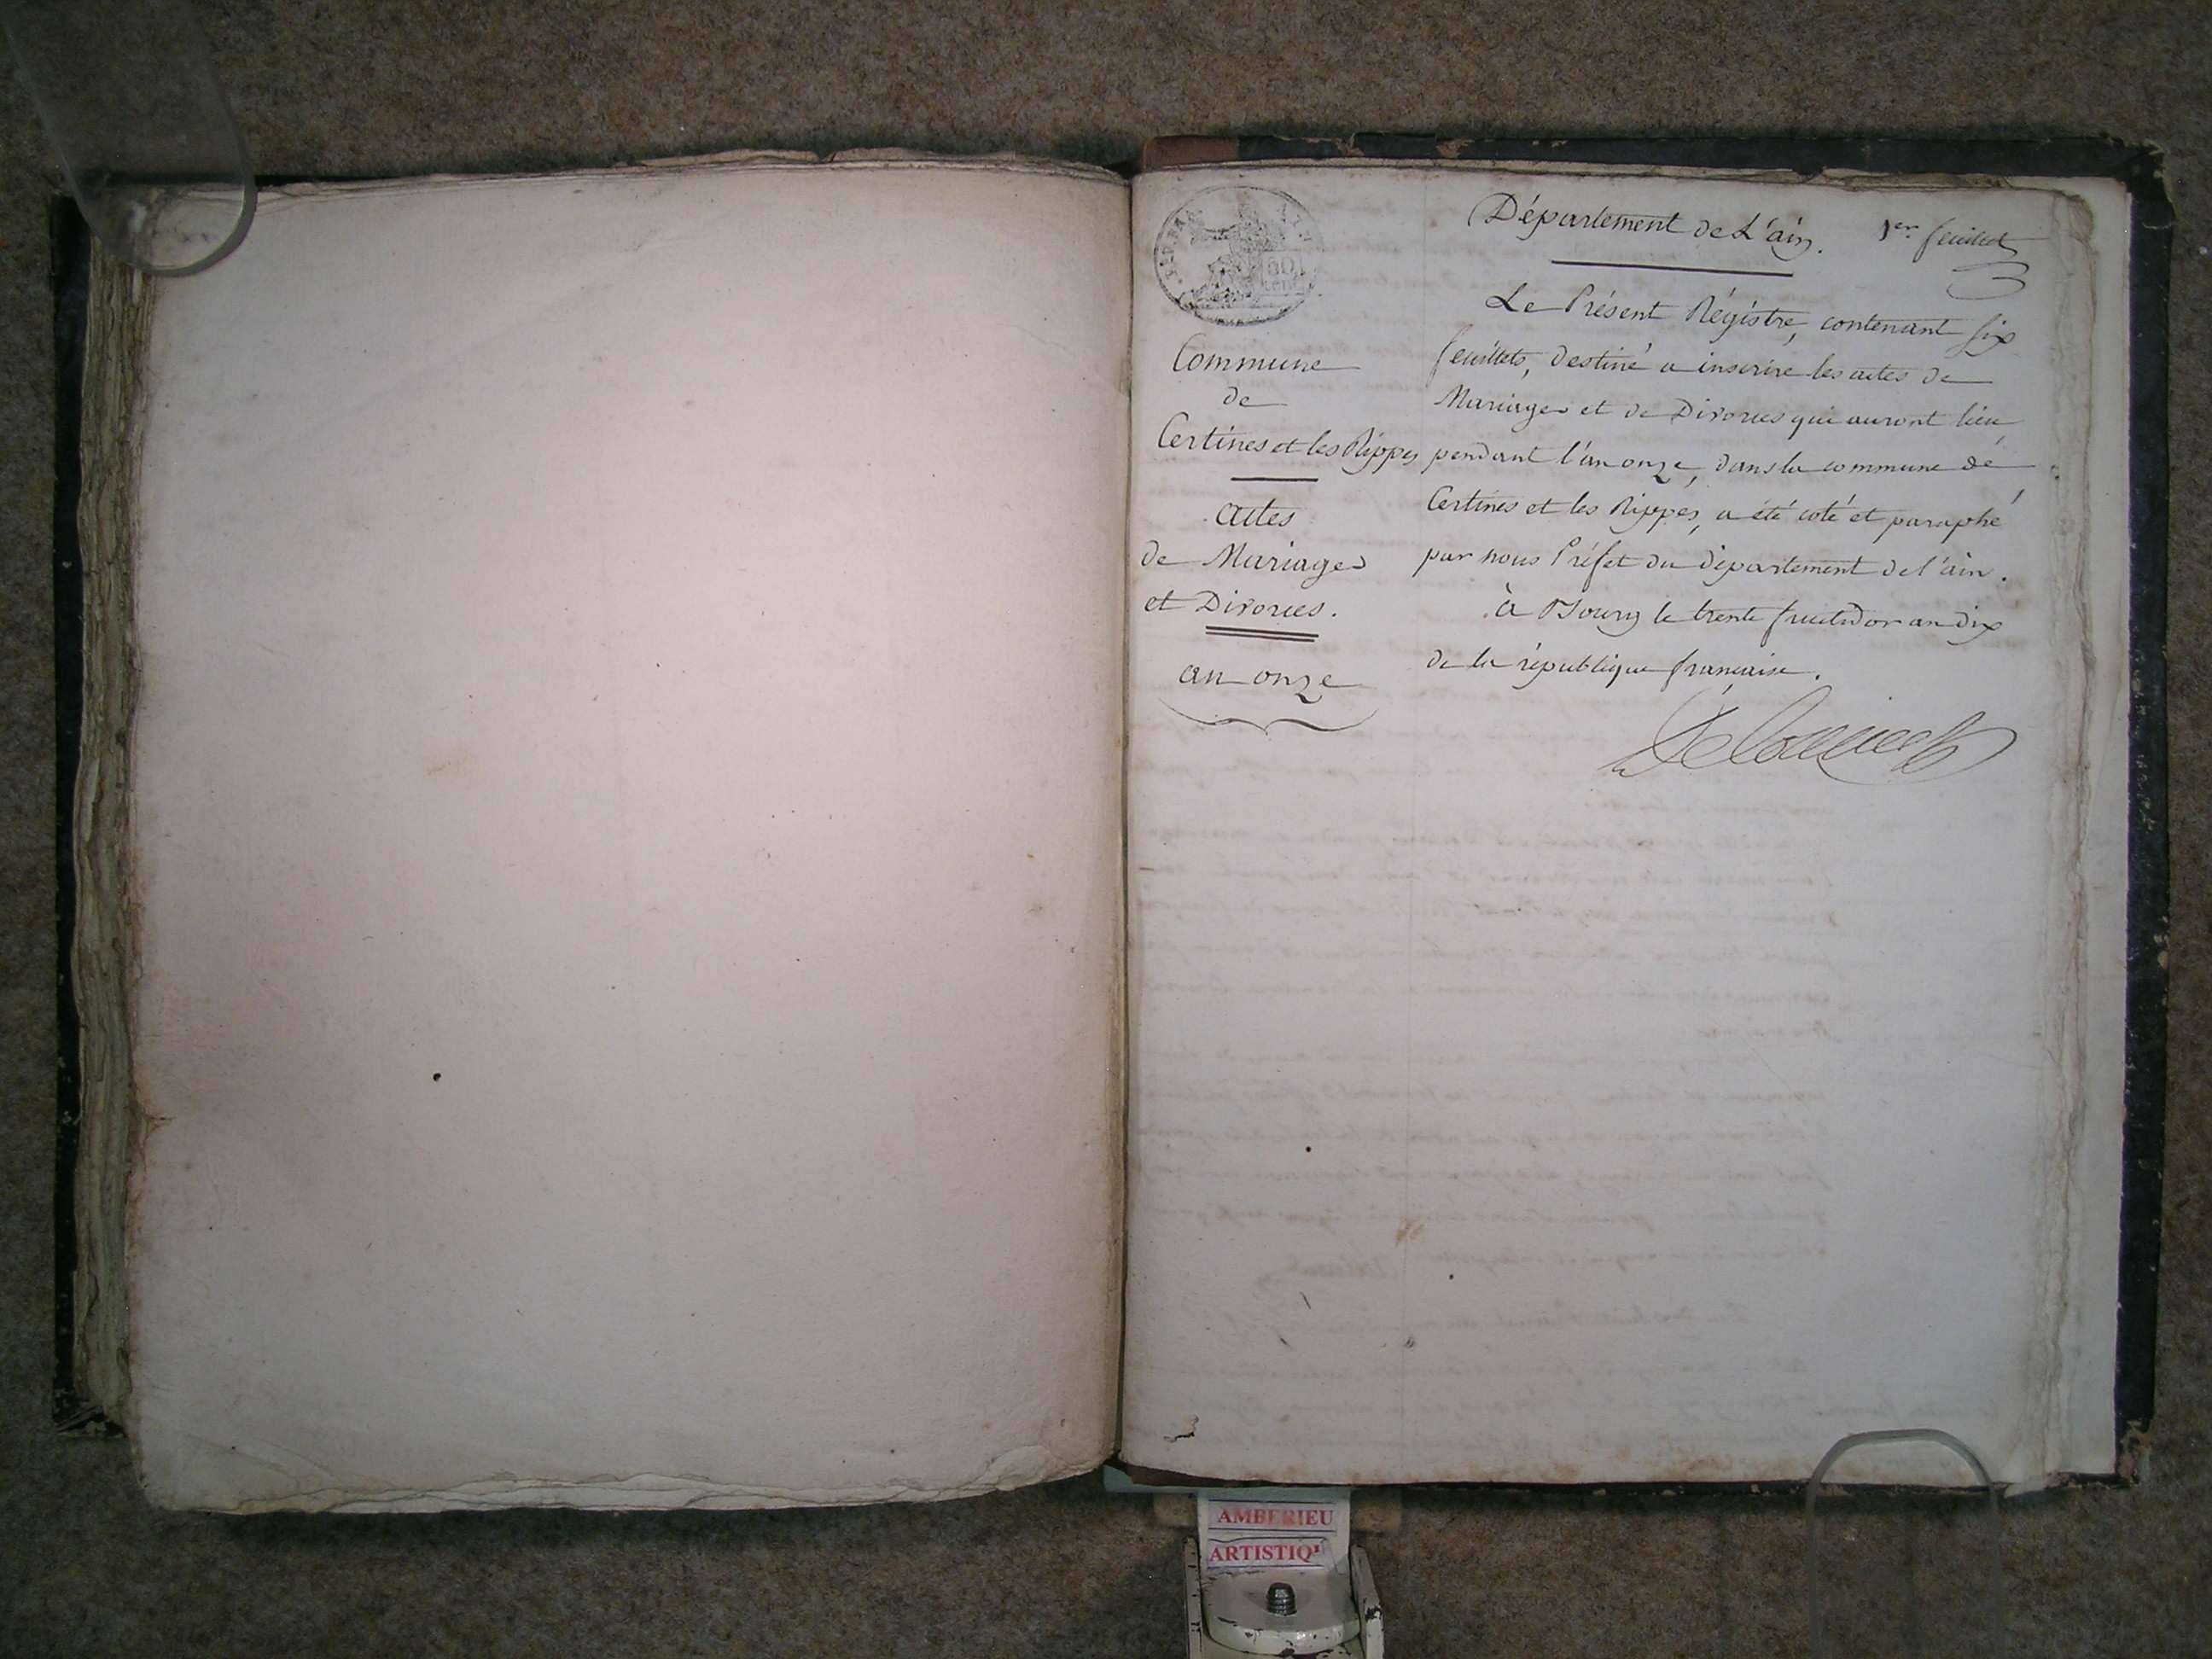 Département de L'ain.
1er feuillet
Commune
de
Certines et les Rippes
actes
de Mariages
et Divorces.
an onze
Le Présent Régistre, contenant six
feuillets, destiné a inscrire les actes de
Mariages et de Divorces qui auront lieu,
pendant l'an onze, dans la commune de
Certines et les Rippes, a été coté et paraphé
par nous Préfet du département de l'ain.
à Bourg le trente fructidor an dix
de la république française.
AMBERIEU
ARTISTIQ